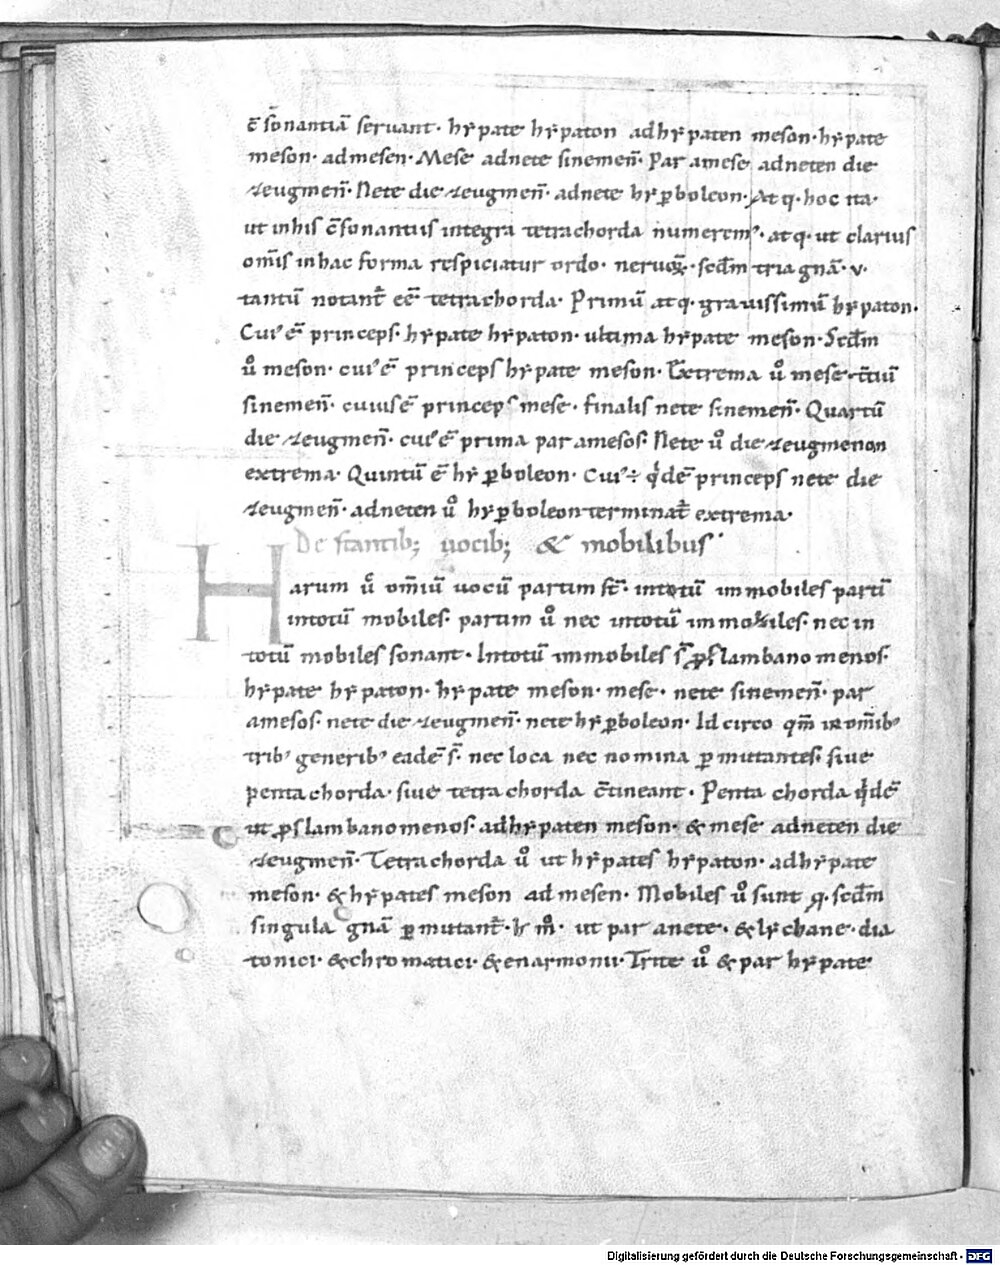 c̄sonantiā seruant· hẏpate hẏpaton adhẏpaten meson· hẏpate
meson· admesen· Mese adnete sinemen̄· Par amese adneten die
zeugmen̄· Nete die zeugmen̄· adnete hẏꝑboleon· At q· hoc ita·
ut inhis c̄sonantiis integra tetrachorda numerem᾽· atq· ut clarius
om̄is inhac forma respiciatur ordo· neruoꝝ· scd̄m tria gn̄a· v·
tantū notant̄ eē tetrachorda· Primū atq· grauissimū hẏpaton·
Cui᾽ ē princeps hẏpate hẏpaton· ultima hẏpate meson· Scd̄m
ů meson· cui᾽ ē princeps hẏpate meson· Extrema ů mese· t̄ciū
sinemen̄· cuiusē princeps mese· finalis nete sinemen̄· Quartū
die zeugmen̄· cui᾽ ē prima par amesos· Nete ů die zeugmenon
extrema· Quintū ē hẏ ꝑboleon· Cui᾽ ÷ q̇dē princeps nete die
zeugmen̄· adneten ů hẏꝑboleon terminat̄ extrema·
De stantib; uocib; & mobilibus
Harum ů om̄iū uocū partim st̄· intotū immobiles parti̅
intotū mobiles· partim ů nec intotū immobiles· nec in
totū mobiles sonant· Intotū immobiles s̄ p̱slambanomenos·
hẏpate hẏpaton· hẏpate meson· mese· nete sinemen̄· par
amesos· nete die zeugmen̄· nete hẏꝑboleon· Id circo qm̄ in om̄ib᾽
trib᾽ generib᾽ eadē s̄· nec loca nec nomina ꝑmutantes· siue
pentachorda· siue tetrachorda c̄tineant· Penta chorda q̇dē
ut p̱slambanomenos· adhẏpaten meson· & mese adneten die
zeugmen̄· Tetrachorda ů ut hẏpates hẏpaton· adhẏpate
meson· & hẏpates meson admesen· Mobiles ů sunt q· scd̄m
singula gn̄a ꝑmutant̄· ut par anete· & lẏchane· dia
tonici· & chromatici· & enarmonii· Trite ů & par hẏpate
Digitalisierung gefördert durch die Deutsche Forschungsgemeinschaft - DFG